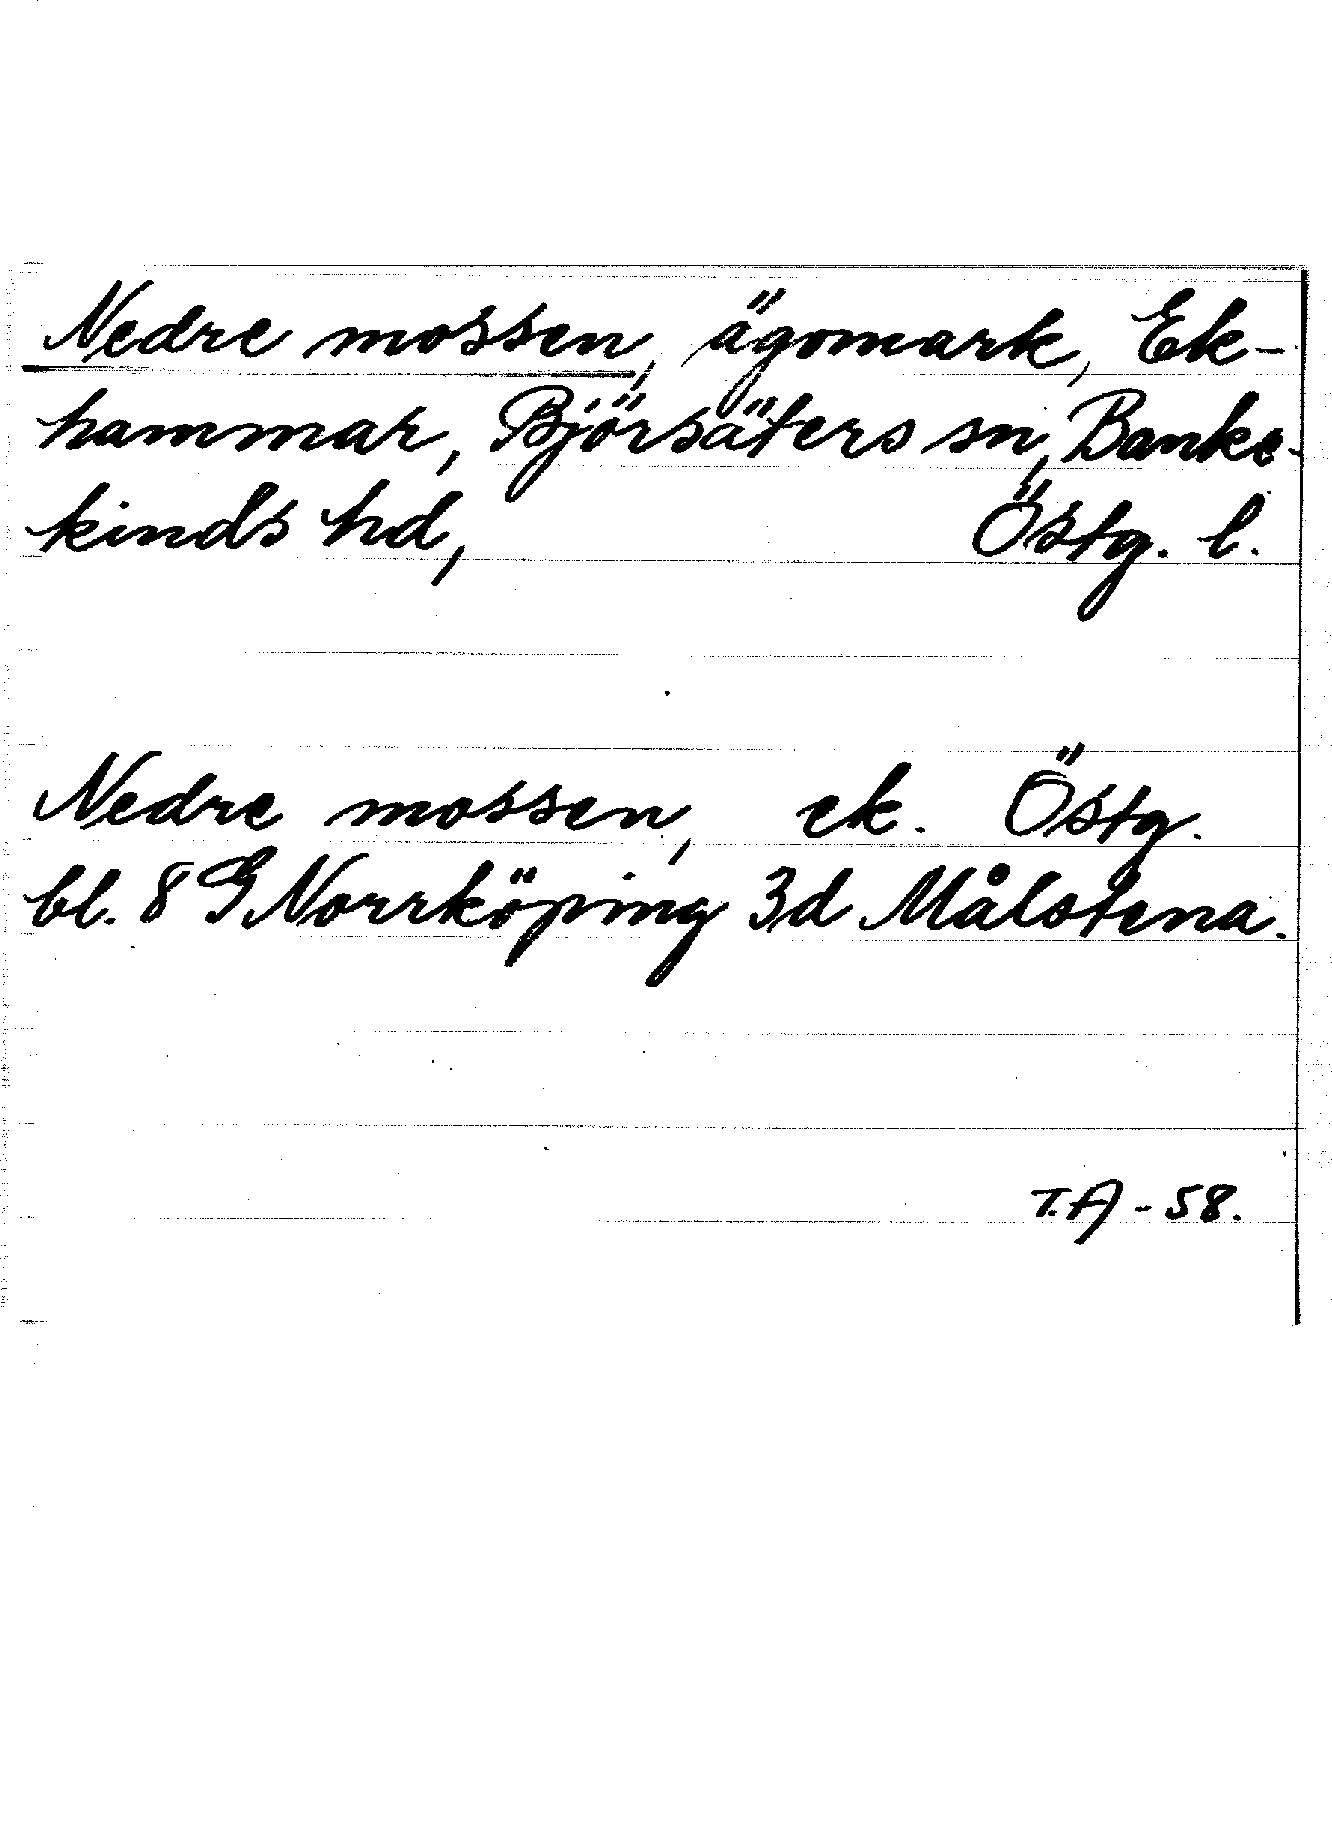 Nedre mossen, ägomark, Ek-
hammar, Björsäters sn, Banke-
kinds hd, Östg. l.
Nedre mossen, ek. Östg.
bl. 8 G Norrköping 3d Målstena.
T.A - 58.